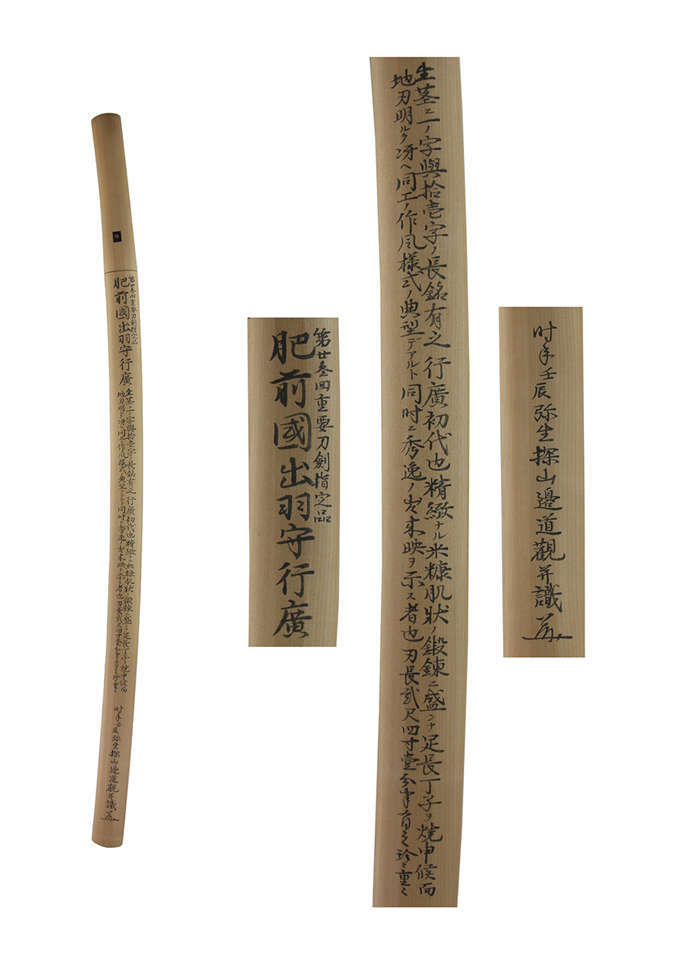 第廿叄回重要刀劍指定品
肥前國出羽守行廣
生茎ニ一ノ字與拾壱字ノ長銘有之 行廣初代也 精緻ナル米糠肌状ノ鍛錬ニ盛ンナ足長丁子ヲ焼申候而
地刃明ルク冴ヘ同工ノ作風様式ノ典型デアルト同時ニ秀逸ノ出来映ヲ示ス者也 刃長貳尺四寸壹分
珍々重々
时年壬辰弥生探山邉道觀并識